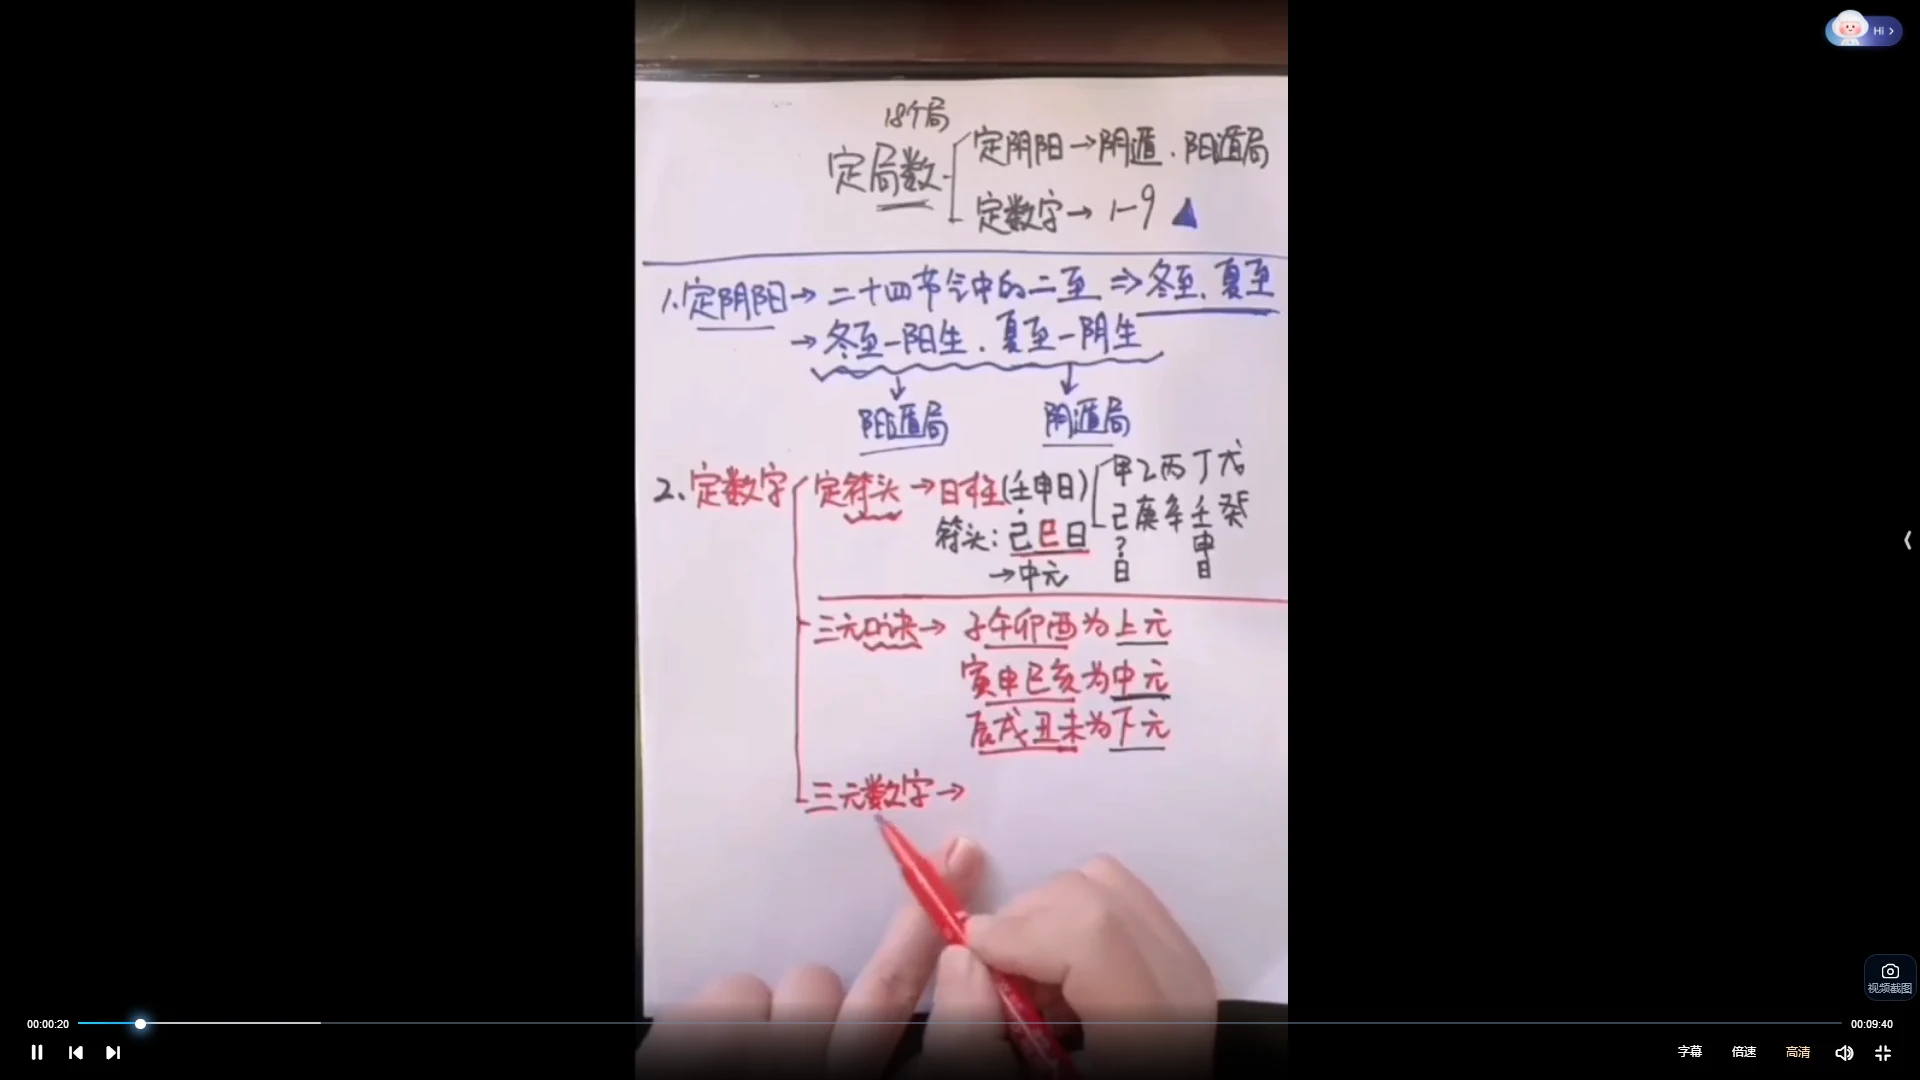 Hi
18个局
定局数
定阴阳→阴遁.阳遁局
定数字→1-9
1.定阴阳→二十四节气中的二至⇒冬至.夏至
→冬至一阳生.夏至一阴生
阳遁局 阴遁局
2、定数字 定符头→日柱(壬申日) 甲乙丙丁戊
己庚辛壬癸
符头:己巳日 ? 申
→中元 日 日
三元口诀→子午卯酉为上元
寅申巳亥为中元
辰戌丑未为下元
三元数字→
视频截图
00:00:20 00:09:40
字幕 倍速 高清